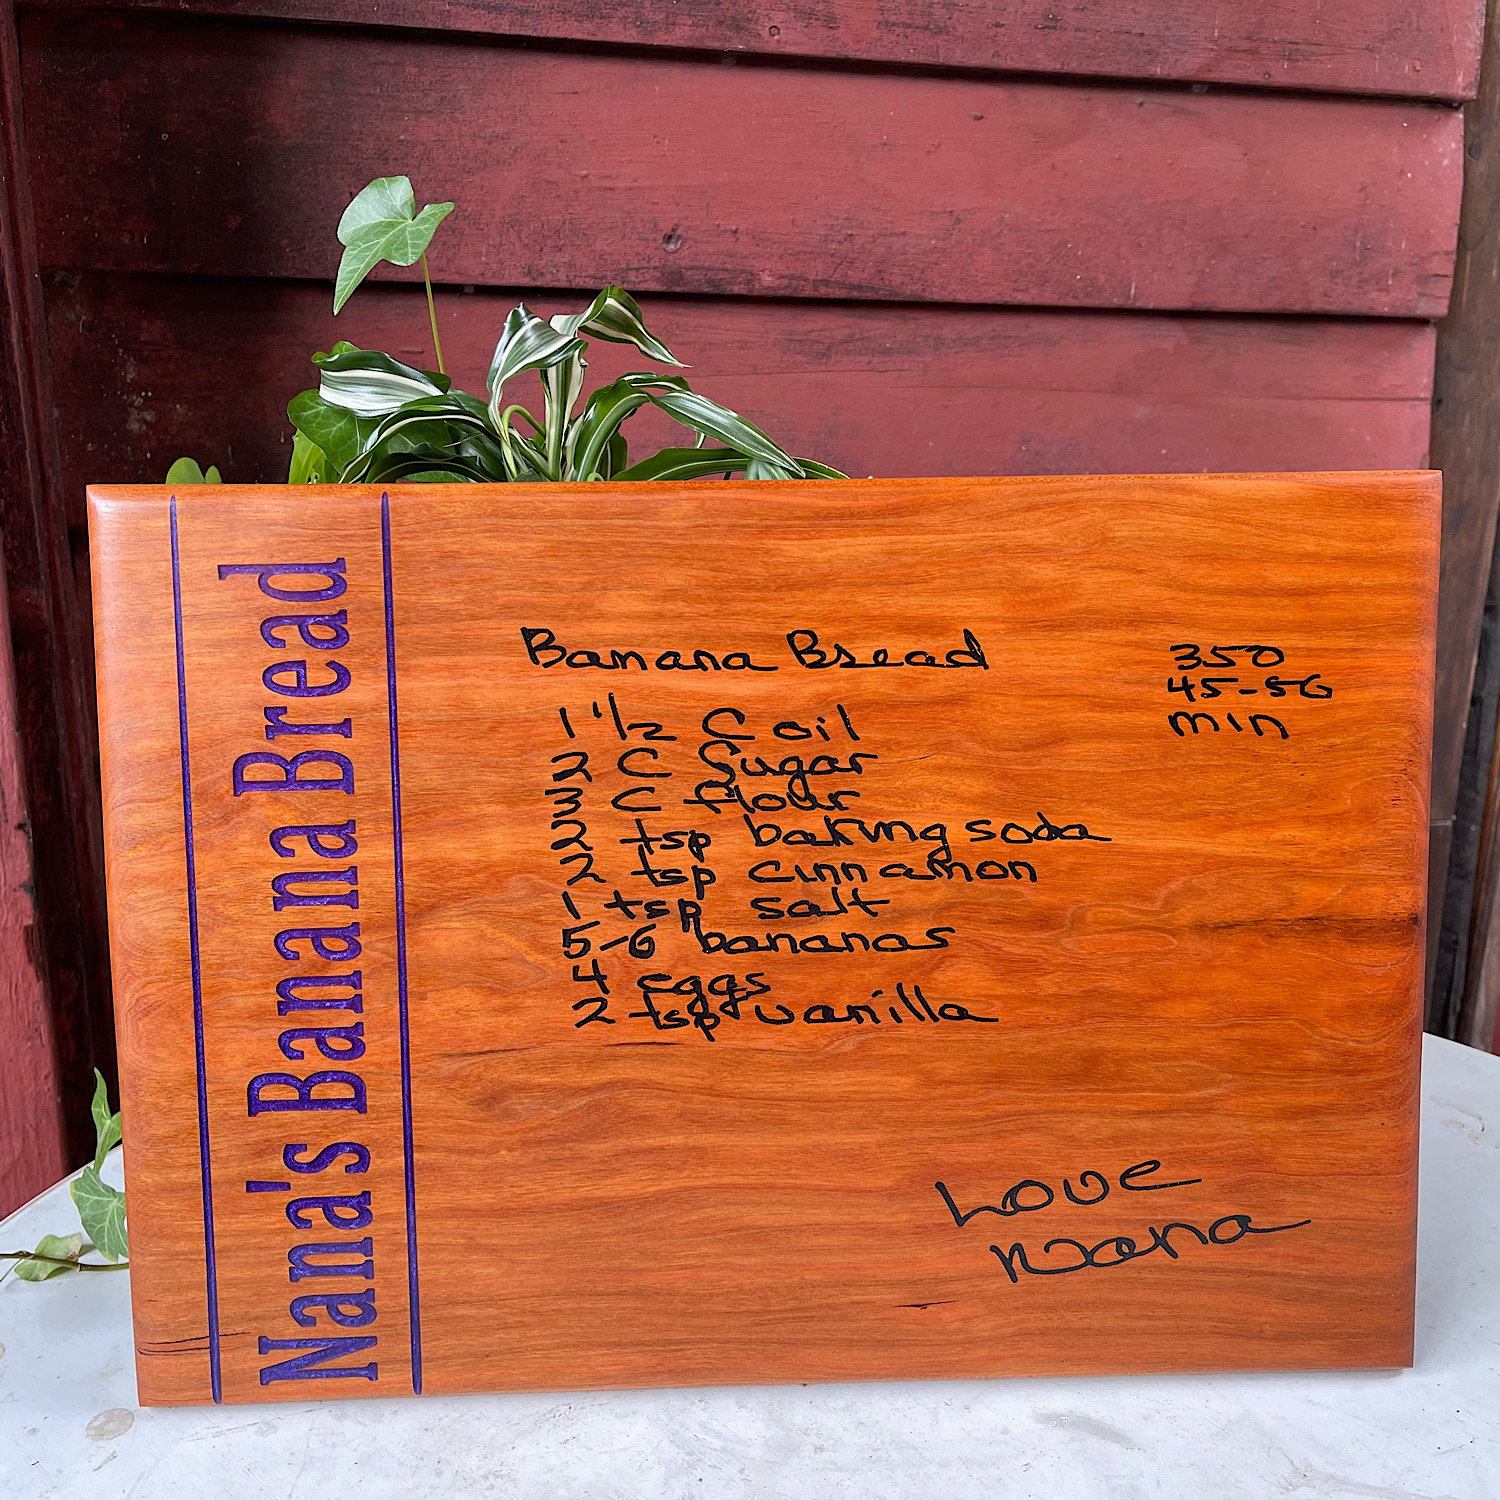 Nana's Banana Bread
Banana Bread
350
45-50
min
1 1/2 C oil
2 C Sugar
3 C flour
2 tsp baking soda
2 tsp cinnamon
1 tsp salt
5-6 bananas
4 eggs
2 tsp vanilla
Love
Nana